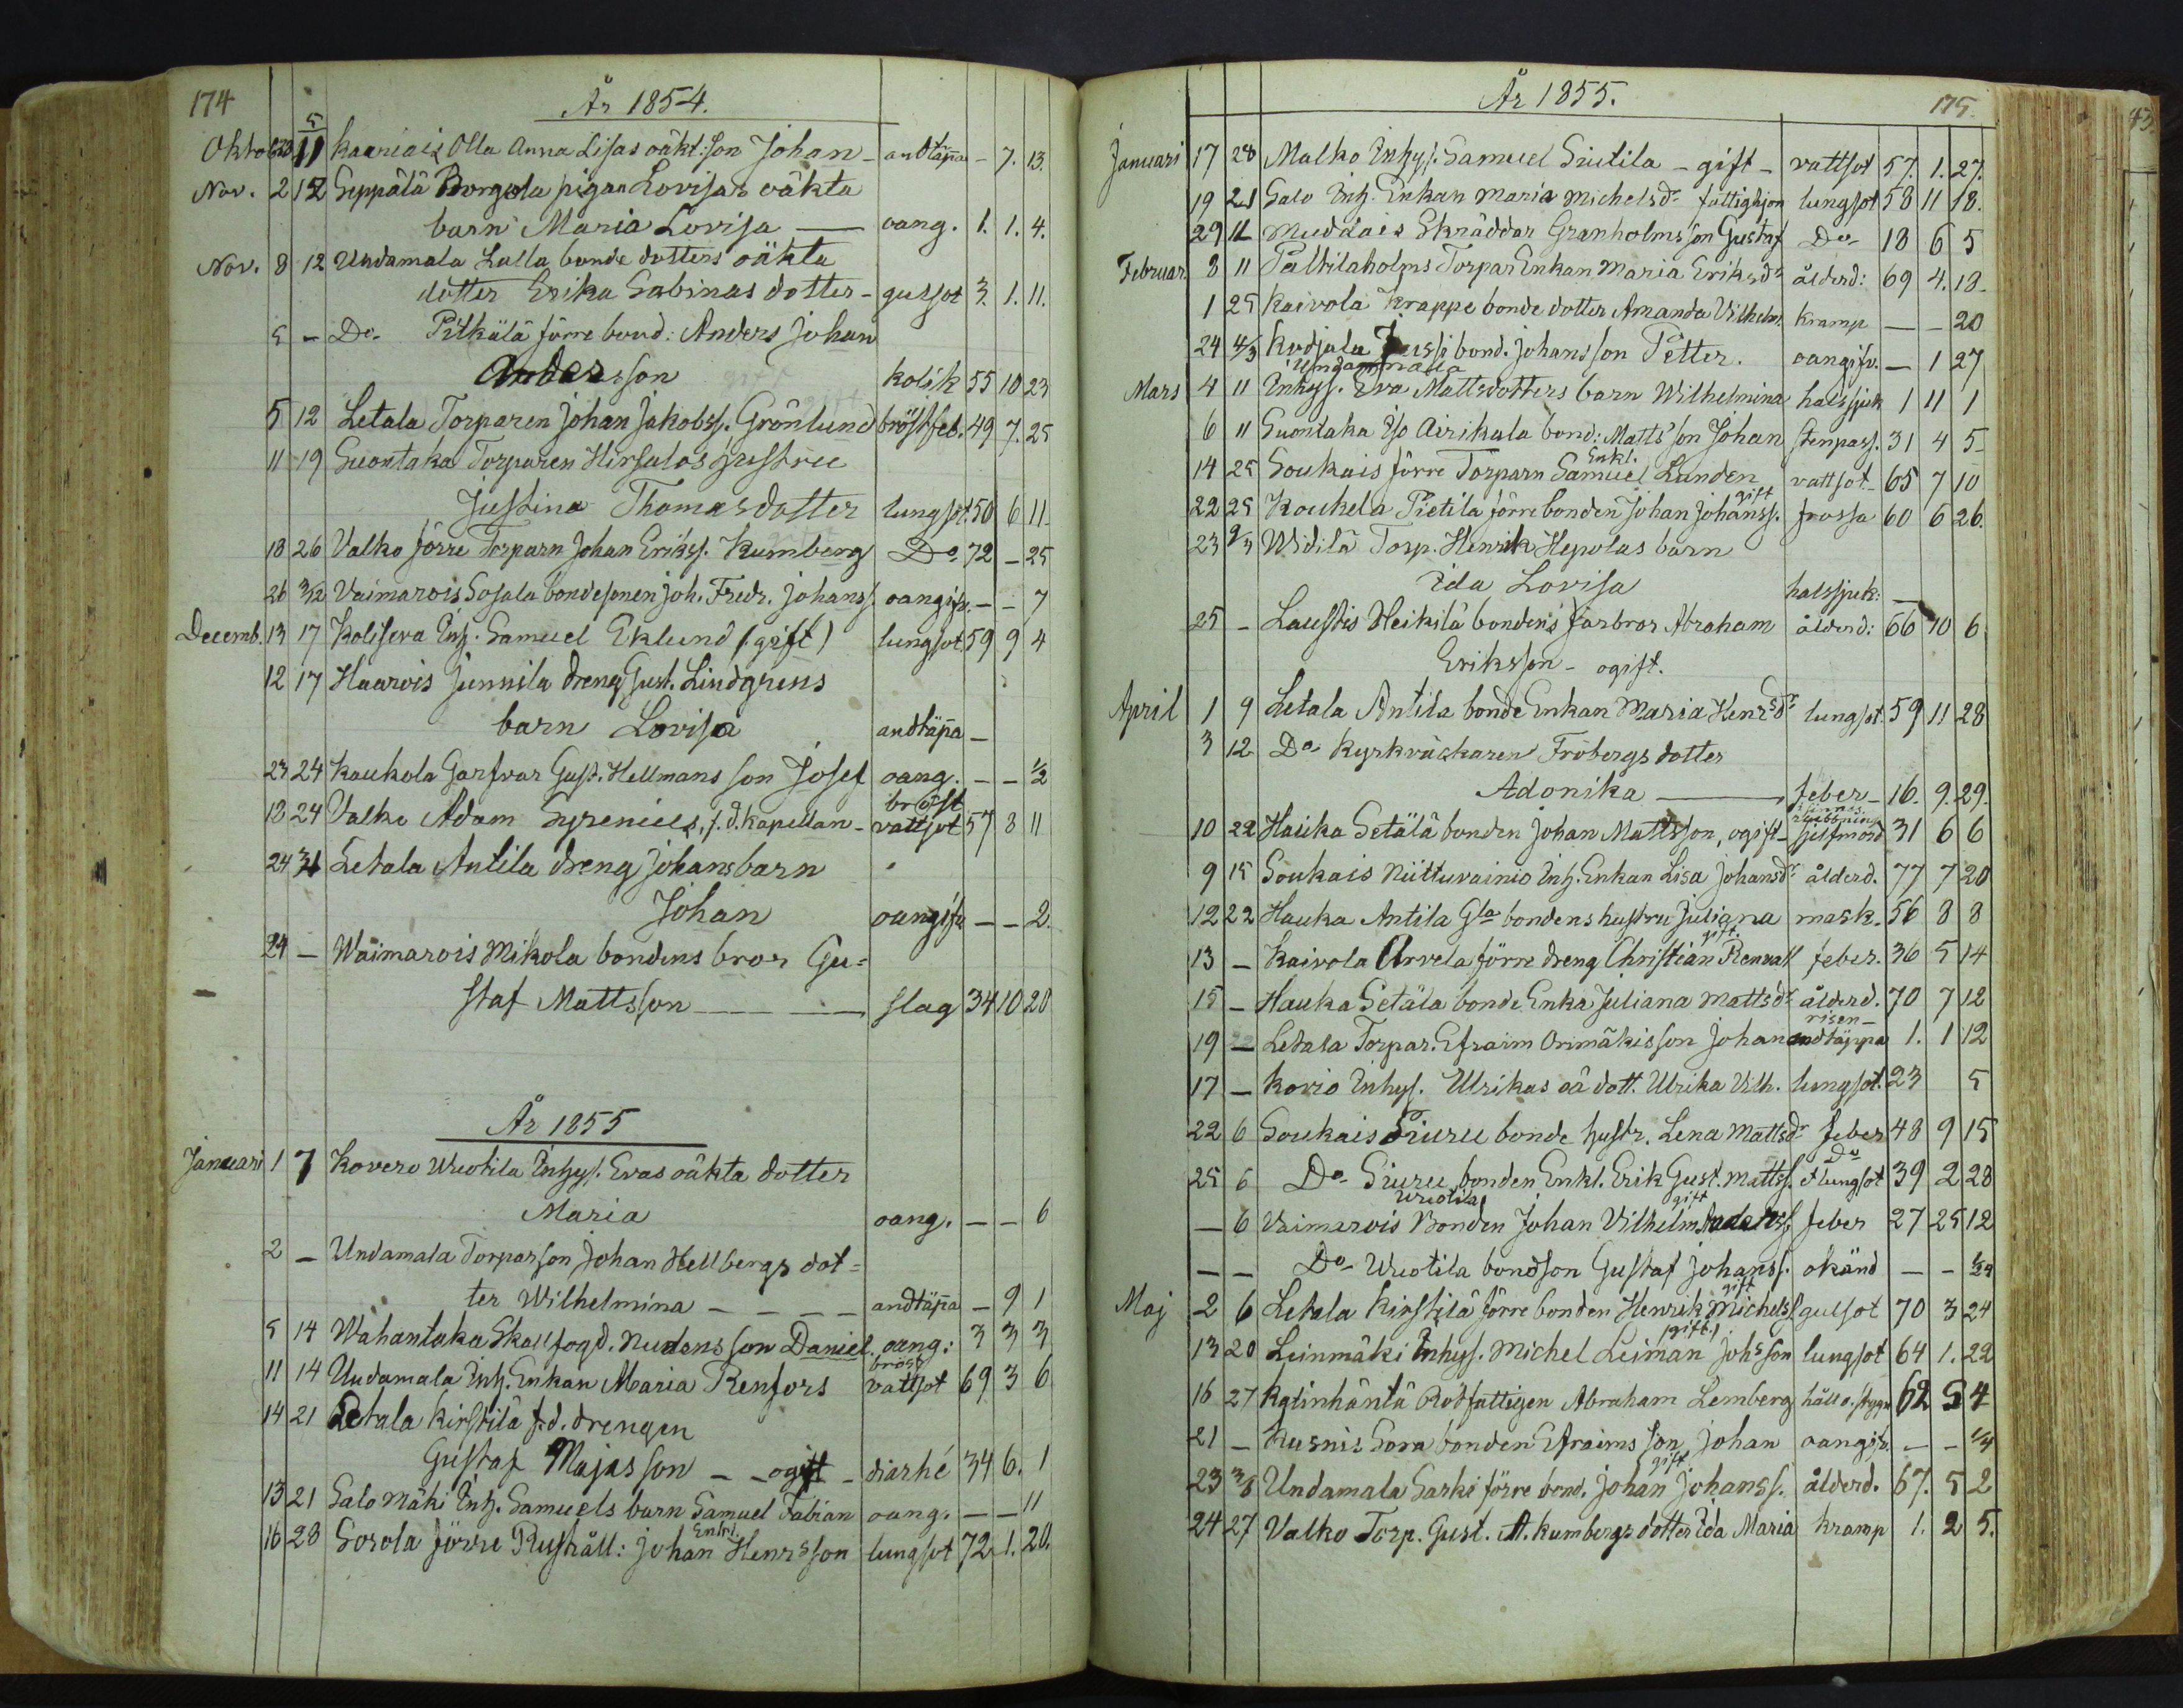 174
År 1854.
Oktob. 30 5/11 Kaariais Olla Anna Lisas oäkt: son Johan - andtäppa - 7. 13.
Nov. 2 12 Seppälä Borgola pigan Lovisas oäkta
barn Maria Lovisa — oang. 1. 1. 4.
Nov. 8 12 Undamala Lalla bonde dotters oäkta
dotter Erika Sabinas dotter - gulsot 3. 1. 11.
5 - Do- Pitkälä förre bond: Anders Johan
Andersson kolik 55 10 23
5 12 Letala Torparen Johan Jakobss. Grönlund bröstfeb. 49 7. 25
11 19 Suontaka Torparen Hirsalos hustru
Justina Thomasdotter lungsot. 50 6 11.
18 26 Valko förre Torparn Johan Erikss. Kumberg Do 72 - 25
26 3/12 Vaimarois Sosala bondesonen Joh. Fredr. Johanss. oangifv. - - 7
Decemb. 13 17 Koliseva Inh. Samuel Eklund (gift) lungsot 59 9 4
12 17 Haarois Junnila dreng Gust. Lindgrens
barn Lovisa andtäppa -
23 24 Kaukola Garfvar Gust. Hellmans son Josef oang. - - 1/2
bröst
18 24 Valko Adam Syrenius, f.d. kapellan - vattsot 57 8 11
24 31 Letala Antila dreng Johans barn
Johan oangifv - - 2.
24 - Waimarois Mikola bondens bror Gu=
staf Mattsson — slag 34 10 20
År 1855
Januari 1 7 Kovero Wuotila Inhys. Evas oäkta dotter
Maria oang. - - 6
2 - Undamala Torparson Johan Hellbergs dot=
ter Wilhelmina - - - - andtäppa - 9 1
5 14 Wahantaka Skallfogd. Nudens son Daniel. oang: 3 3 3
bröst
11 14 Undamala Inh. Enkan Maria Renfors vattsot 69 3 6
14 21 Letala Kirstilä f.d. drengen
Gustaf Majas son - - ogift - diarhé 34 6. 1
13 21 Salo Mäki Inh. Samuels barn Samuel Fabian oang. - - 11
Enkl.
16 28 Sorola förre Rusthåll: Johan Henrsson lungsot 72 1. 20.
År 1855.
175.
Januari 17 28 Malko Inhys. Samuel Siutila - gift - vattsot 57. 1. 27.
19 21 Salo Inh. Enkan Maria Michelsdr fattighjon lungsot 58 11 18.
29 11 Muddais Skräddar Granholms son Gustaf Do- 18 6 5
Februar 8 11 Paltilaholms Torpar Enkan Maria Eriksdr ålderd: 69 4. 18.
1 25 Kaivola Krappe bonde dotter Amanda Vilhelm. Kramp - - 20
24 4/3 Kodjala Jussi bond. Johans son Petter. oangifv. - 1 27
Mars 4 11 Inhys. Eva Mattsdotters barn Wilhelmina halssjuk 1 11 1
6 11 Suontaka Iso Airikala bond: Matts' son Johan stenpass. 31 4 5-
Enkl.
14 25 Soukais förre Torparn Samuel Lunden vattsot - 65 7 10
gift
22 25 Koukela Pietila förre bonden Johan Johanss. frossa 60 6 26.
23 9/3 Widilä Torp. Henrik Hepolas barn
Ida Lovisa halssjuk: -
25 - Laustis Heikilä bonden's farbror Abraham ålderd: 66 10 6
Eriksson - ogift.
April 1 9 Letala Antila bonde Enkan Maria Henrsdr lungsot. 59 11 28
3 12 Do Kyrkväktaren Frobergs dotter
Adonika — feber - 16. 9. 29.
10 22 Hauka Setälä bonden Johan Mattsson, ogift - sjelfmord 31 6 6
9 15 Soukais Niittuvainio Inh. Enkan Lisa Johansdr ålderd. 77 7 20
12 22 Hauka Antila Gla bondens hustru Juliana mask. 56 8 8
gift.
13 - Kaivola Arvela förre dreng Christian Renvall feber. 36 5 14
15 - Hauka Setäla bonde Enka Juliana Mattsdr ålderd. 70 7 12
risen-
19 - Letala Torpar. Efraim Orimäkis son Johan andtäppa 1. 1 12
17 - Kovio Inhys. Ulrikas oä dott. Ulrika Vilh. lungsot. 23 5
22 6 Soukais Siuru bonde hustr. Lena Mattsdr feber 48 9 15
Do
25 6 Do- Siuru bonden Enkl. Erik Gust. Mattss. & lungsot 39 2 28
Wuotila gift
- 6 Vaimarois Bonden Johan Vilhelm Anderss. feber 27 25 12
- - Do- Wuotila bondson Gustaf Johanss. okänd - - 1/24
gift
Maj 2 6 Letala Kirstilä förre bonden Henrik Michelss gulsot 70 3 24
gift.
13 20 Leinmäki Inhys. Michel Leiman Johsson lungsot 64 1. 22
16 27 Katinhäntä Rotfattigen Abraham Lemberg håll o. stygn 62 5 4
21 - Kusnis Sora bonden Efraims son Johan oangifv. - - 1/4
gift
23 3/6 Undamala Sarki förre bond. Johan Johanss. ålderd. 67. 5 2
24 27 Valko Torp. Gust. A. Kumbergs dotter Ida Maria Kramp 1. 2 5.